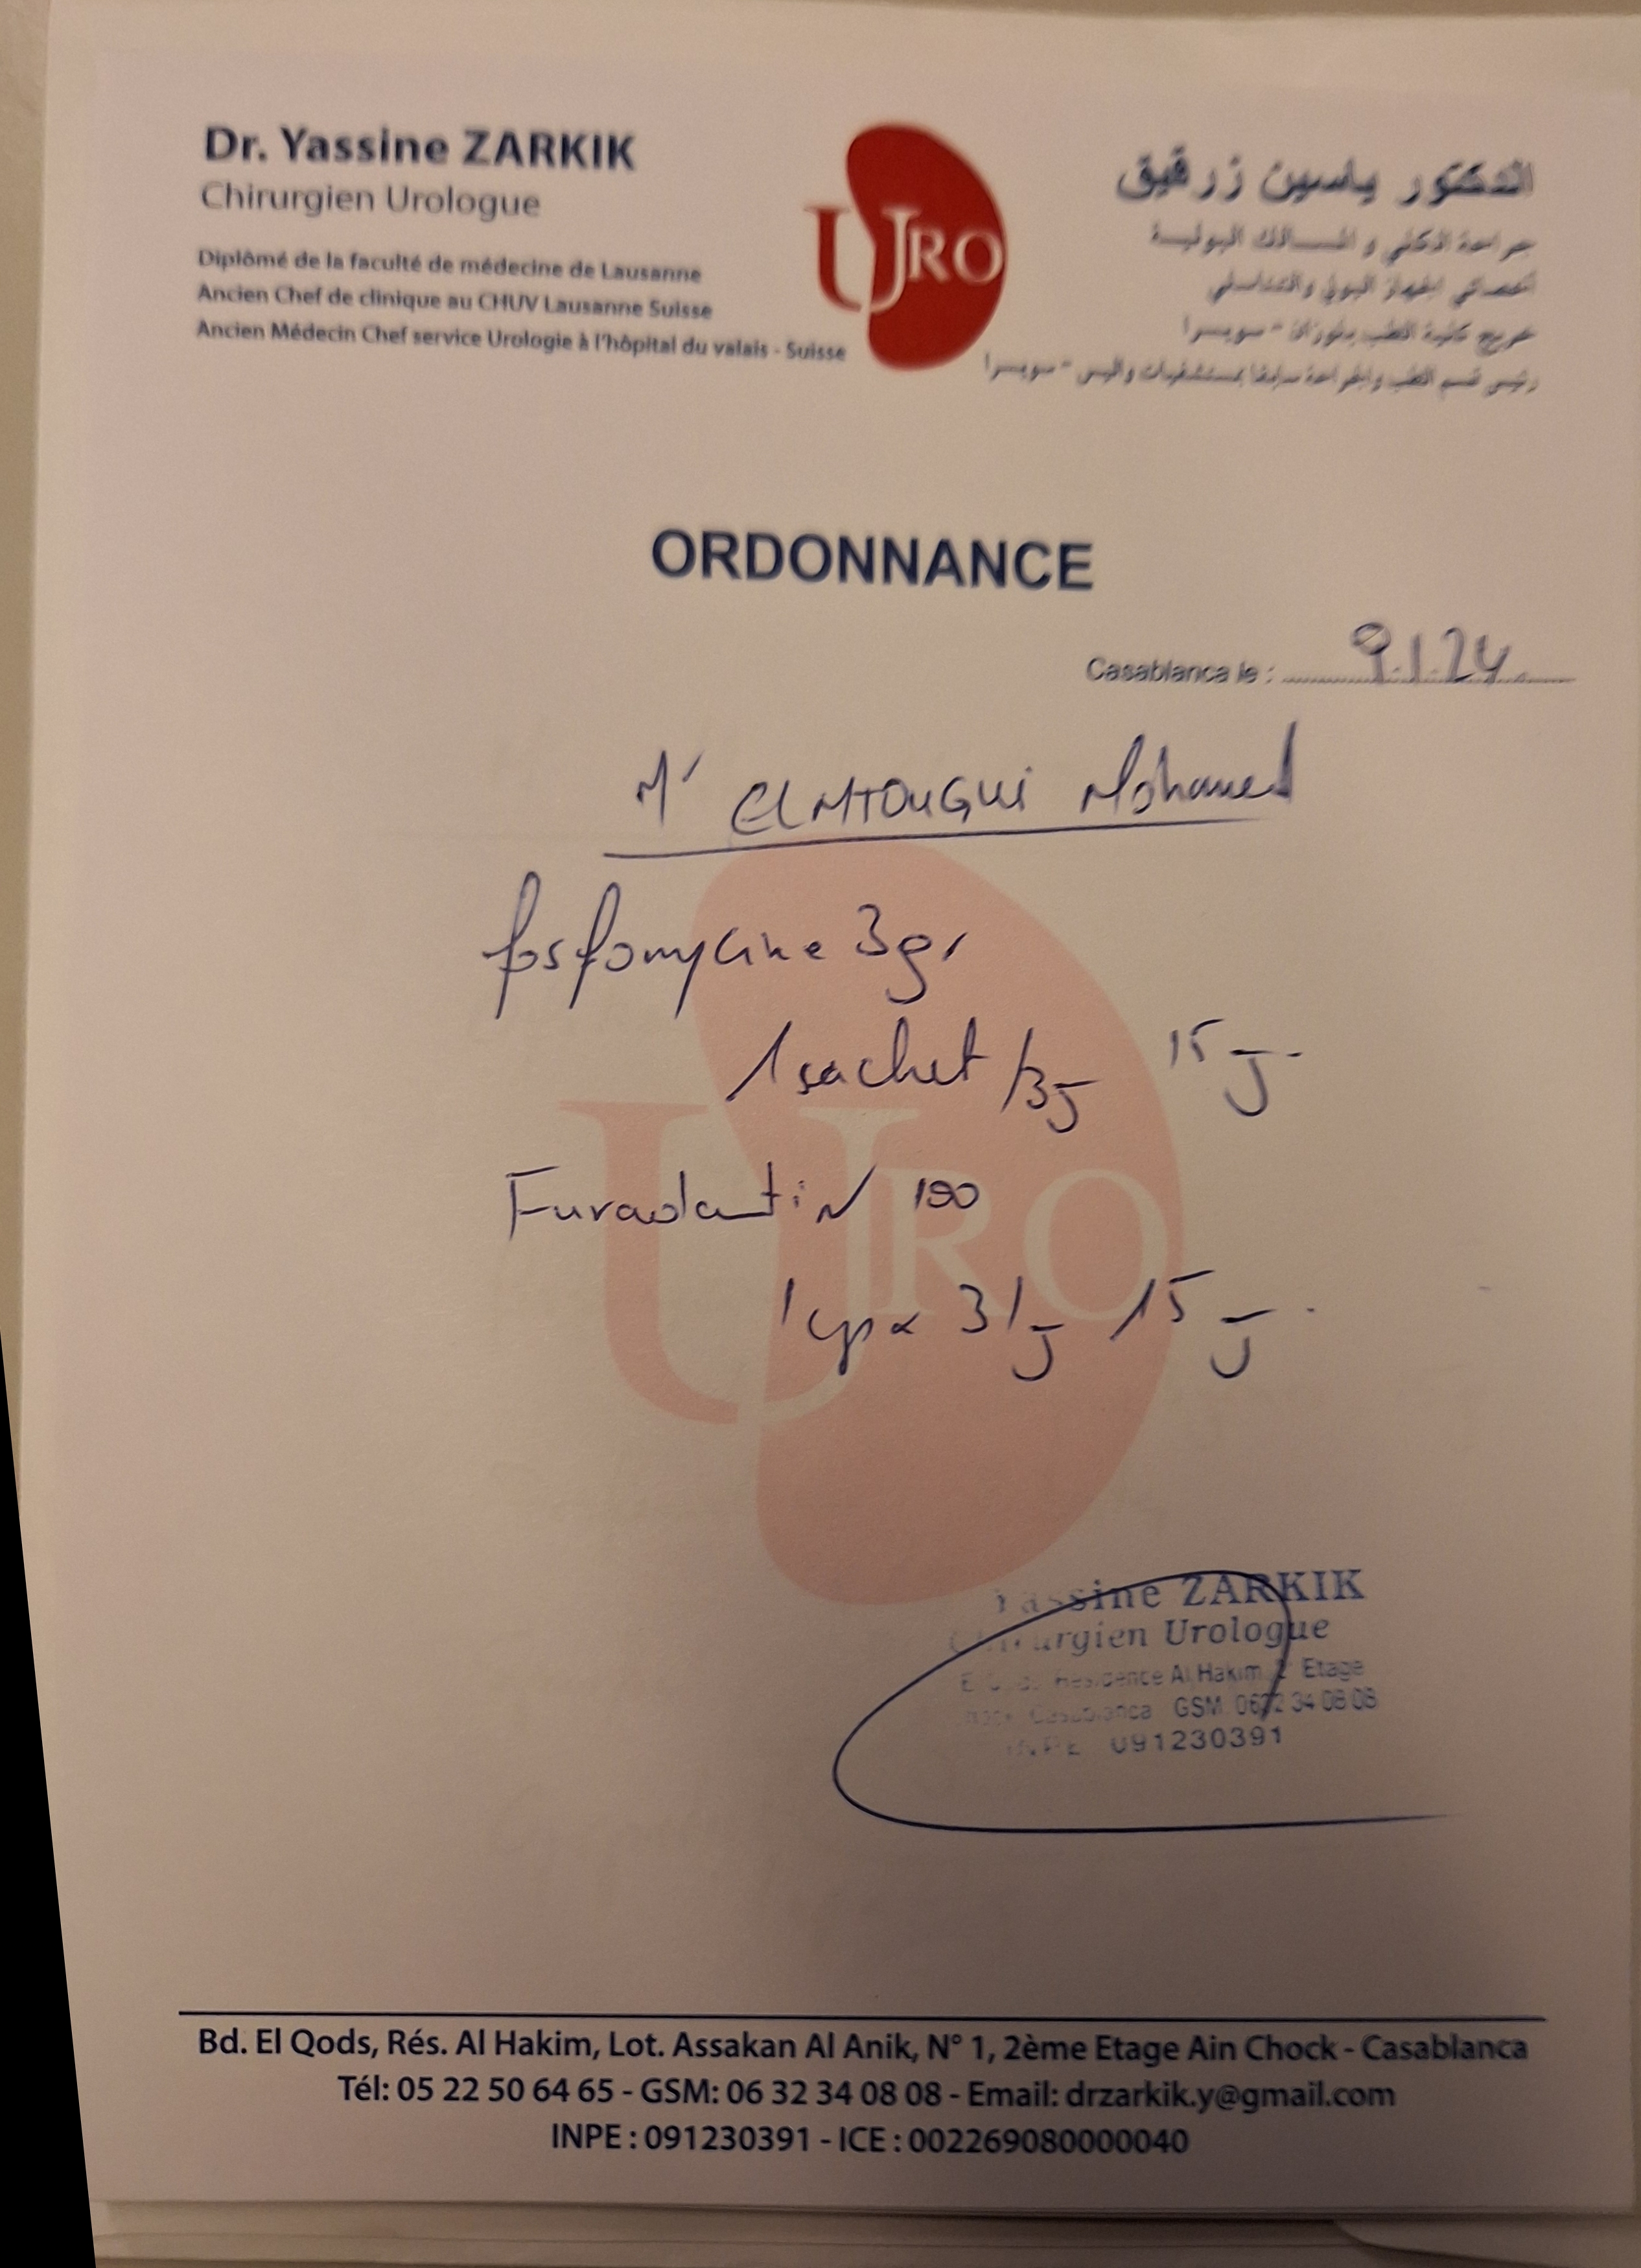 Dr. Yassine ZARKIK
Chirurgien Urologue
Diplômé de la faculté de médecine de Lausanne
Ancien Chef de clinique au CHUV Lausanne Suisse
Ancien Médecin Chef service Urologie à l'hôpital du valais - Suisse
URO
الدكتور ياسين زرقيق
جراحة الكلي و المسالك البولية
أخصائي الجهاز البولي والتناسلي
خريج كلية الطب بلوزان - سويسرا
رئيس قسم الطب والجراحة سابقا بمستشفيات واليس - سويسرا
ORDONNANCE
Casablanca le : 9.1.24
Mr ELMTOUGUI Mohamed
fosfomycine 3gr
1 sachet /3j 15j.
Furadantin 100
1 cp x 3/j 15j.
URO
Yassine ZARKIK
Chirurgien Urologue
Résidence Al Hakim 2° Etage
Casablanca GSM 0632 34 08 08
INPE 091230391
Bd. El Qods, Rés. Al Hakim, Lot. Assakan Al Anik, N° 1, 2ème Etage Ain Chock - Casablanca
Tél: 05 22 50 64 65 - GSM: 06 32 34 08 08 - Email: drzarkik.y@gmail.com
INPE : 091230391 - ICE : 002269080000040